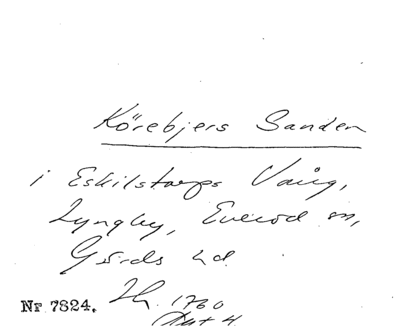 Körebjers Sanden
i Eskilstorps Vång,
Lyngby, Everöd sn,
Gärds hd.
Nr 7824. 1760
Akt 4